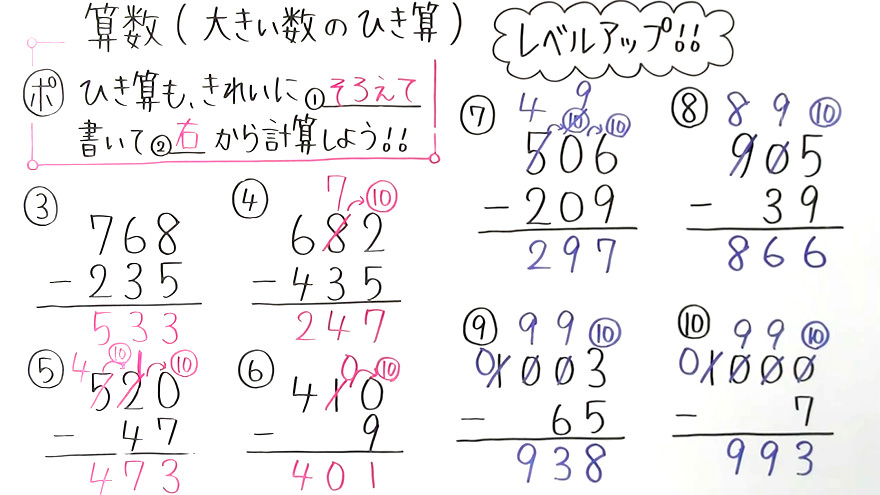 算数(大きい数のひき算)
レベルアップ!!
ポ ひき算も、きれいに①そろえて
書いて②右から計算しよう!!
③
768
-235
533
④
7 ⑩
682
-435
247
⑤
4 ⑩ 1 ⑩
520
- 47
473
⑥
0 ⑩
410
- 9
401
⑦
4 9
⑩ ⑩
506
-209
297
⑧
8 9 ⑩
905
- 39
866
⑨
9 9 ⑩
0 1003
- 65
938
⑩
9 9 ⑩
0 1000
- 7
993